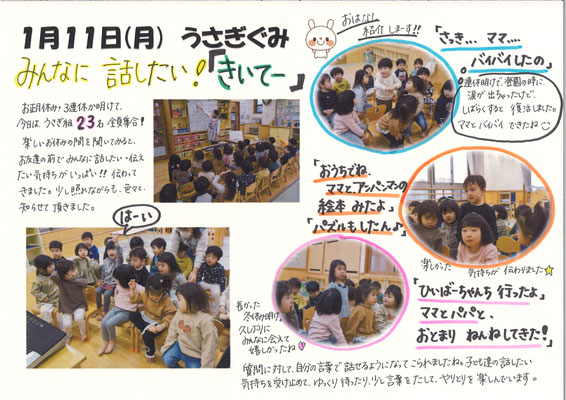 1月11日(月) うさぎぐみ
みんなに 話したい!「きいてー」
おはなし
紹介しまーす!!
「さっき... ママ....
バイバイしたの」
連休明けで、登園の時に、
涙が出ちゃったけど、
しばらくすると 復活しました。
ママとバイバイ できたね
お正月休み・3連休が明けて、
今日は、うさぎ組 23名 全員集合!
楽しいお休みの間を聞いてみると、
お友達の前で・みんなに話したい・伝え
たい気持ちがいっぱい!! 伝わって
きました。少し照れながらも、色々と、
知らせて頂きました。
はーい
「おうちでね、
ママとアンパンマンの
絵本 みたよ」
「パズルもしたん♪」
楽しかった 気持ちが 伝わりました
「ひいばーちゃんち 行ったよ」
ママとパパと、
おとまり ねんねしてきた!
長かった
冬休み明け、
久しぶりに
みんなに会えて
嬉しかったね
質問に対して、自分の言葉で話せるようになってこられましたね。子ども達の話したい
気持ちを受け止めて、ゆっくり待ったり、少し言葉をたして、やりとりを楽しんでいます。